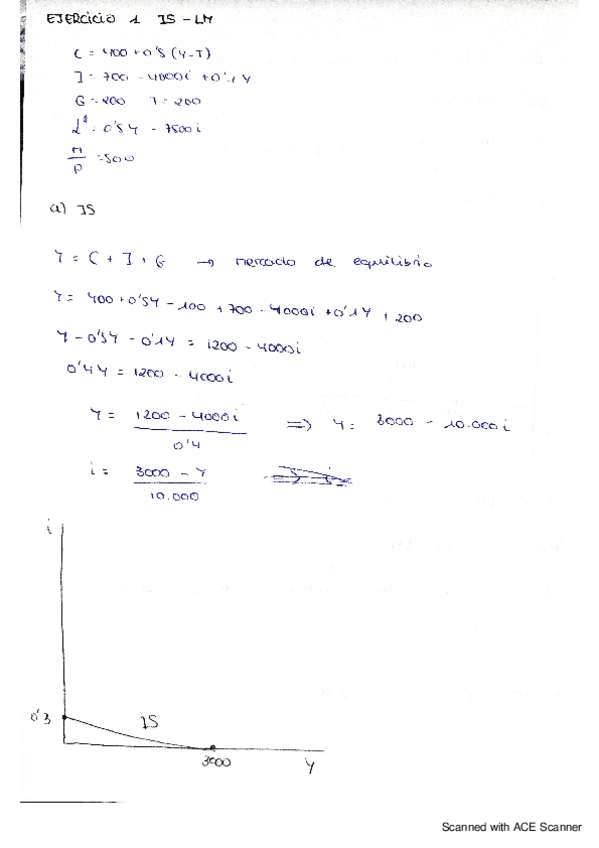 EJERCICIO 1 IS - LM
C = 400 + 0'5 (Y-T)
I = 700 - 4000i + 0'1Y
G = 200 T = 200
L^d = 0'5Y - 7500i
M/P = 500
a) IS
Y = C + I + G → mercado de equilibrio
Y = 400 + 0'5Y - 100 + 700 - 4000i + 0'1Y + 200
Y - 0'5Y - 0'1Y = 1200 - 4000i
0'4Y = 1200 - 4000i
Y = 1200 - 4000i / 0'4 ⇒ Y = 3000 - 10.000i
i = 3000 - Y / 10.000
i
0'3
IS
3000
Y
Scanned with ACE Scanner